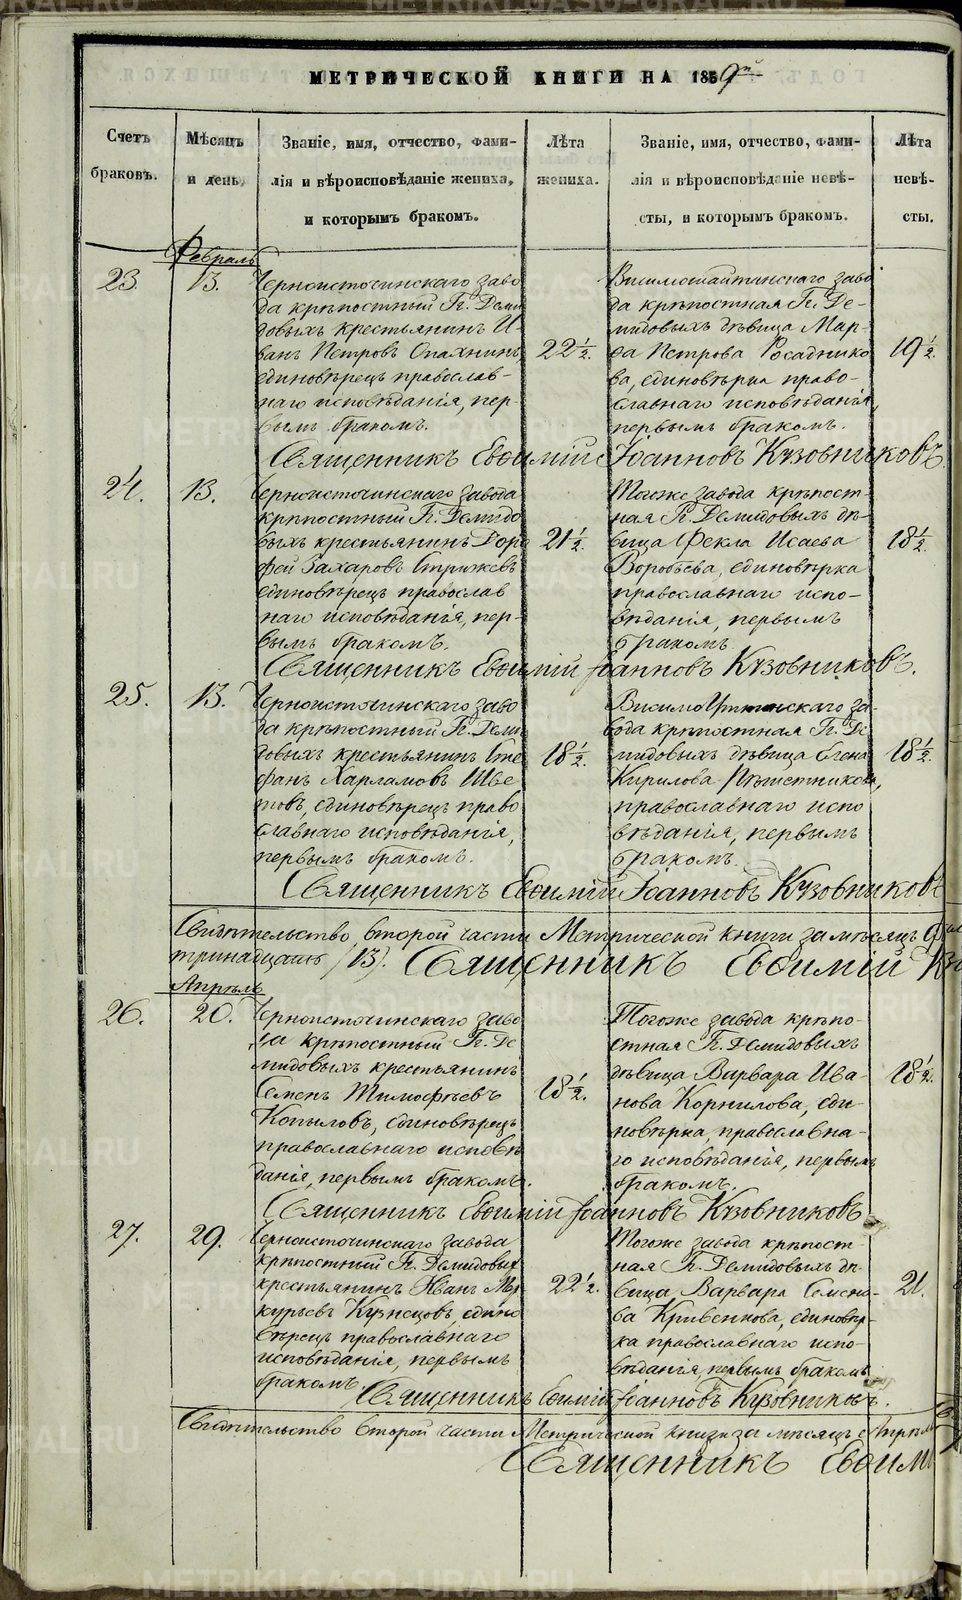 МЕТРИЧЕСКОЙ КНИГИ НА 1859й
Счетъ браковъ.
Мѣсяцъ и день.
Званіе, имя, отчество, фами-
лія и вѣроисповѣданіе жениха,
и которымъ бракомъ.
Лѣта жениха.
Званіе, имя, отчество, фами-
лія и вѣроисповѣданіе невѣ-
сты, и которымъ бракомъ.
Лѣта невѣ-
сты.
Февраль
23. 13.
Черноисточинскаго заво
да крѣпостный Гг. Деми
довыхъ крестьянинъ И-
ванъ Петровъ
единовѣрецъ православ-
наго исповѣданія, пер-
вымъ бракомъ.
22 1/2.
Висимошайтанскаго заво
да крѣпостная Гг. Де-
мидовыхъ дѣвица Мар-
ѳа Петрова Росаднико
ва, единовѣрка право-
славнаго исповѣданія,
первымъ бракомъ.
19 1/2.
Священникъ Евѳимій Іоанновъ Кузовниковъ
24. 13.
Черноисточинскаго завода
крѣпостный Гг. Демидо
выхъ крестьянинъ Доро
фей Захаровъ Стрижевъ
единовѣрецъ православ
наго исповѣданія, пер-
вымъ бракомъ.
21 1/2.
Тогоже завода крѣпост-
ная Гг. Демидовыхъ дѣ-
вица Фекла Исаева
Воробьева, единовѣрка
православнаго испо-
вѣданія, первымъ
бракомъ
18 1/2.
Священникъ Евѳимій Іоанновъ Кузовниковъ.
25. 13.
Черноисточинскаго заво
да крѣпостный Гг. Деми
довыхъ крестьянинъ Сте
фанъ Харламовъ Шве
товъ, единовѣрецъ право
славнаго исповѣданія,
первымъ бракомъ.
18 1/2.
за-
вода крѣпостная Гг. Де
мидовыхъ дѣвица Елена
Кирилова
православнаго испо
вѣданія, первымъ
бракомъ.
18 1/2.
Священникъ Евѳимій Іоанновъ Кузовниковъ
Свидѣтельство второй части Метрической книги за мѣсяцъ
тринадцать (13). Священникъ Евѳимій
Апрѣль
26. 20.
Черноисточинскаго заво
да крѣпостный Гг. Де
мидовыхъ крестьянинъ
Семенъ Тимофѣевъ
Копыловъ, единовѣрецъ
православнаго исповѣ
данія, первымъ бракомъ.
18 1/2.
Тогоже завода крѣпо-
стная Гг. Демидовыхъ
дѣвица Варвара Ива-
нова Корнилова, еди-
новѣрка, православна-
го исповѣданія, первымъ
бракомъ.
18 1/2.
Священникъ Евѳимій Іоанновъ Кузовниковъ
27. 29.
Черноисточинскаго завода
крѣпостный Гг. Демидовых
крестьянинъ Иванъ Мер
курьевъ Кузнецовъ, едино
вѣрецъ православнаго
исповѣданія, первымъ
бракомъ.
22 1/2.
Тогоже завода крѣпост-
ная Гг. Демидовыхъ дѣ-
вица Варвара Семено-
ва Кривенкова, единовѣр-
ка православнаго испо-
вѣданія, первымъ бракомъ
21.
Священникъ Евѳимій Іоанновъ Кузовниковъ.
Свидѣтельство второй части Метрической книги за мѣсяцъ Апрѣль
Священникъ Евѳими
METRIKI.GASO-URAL.RU